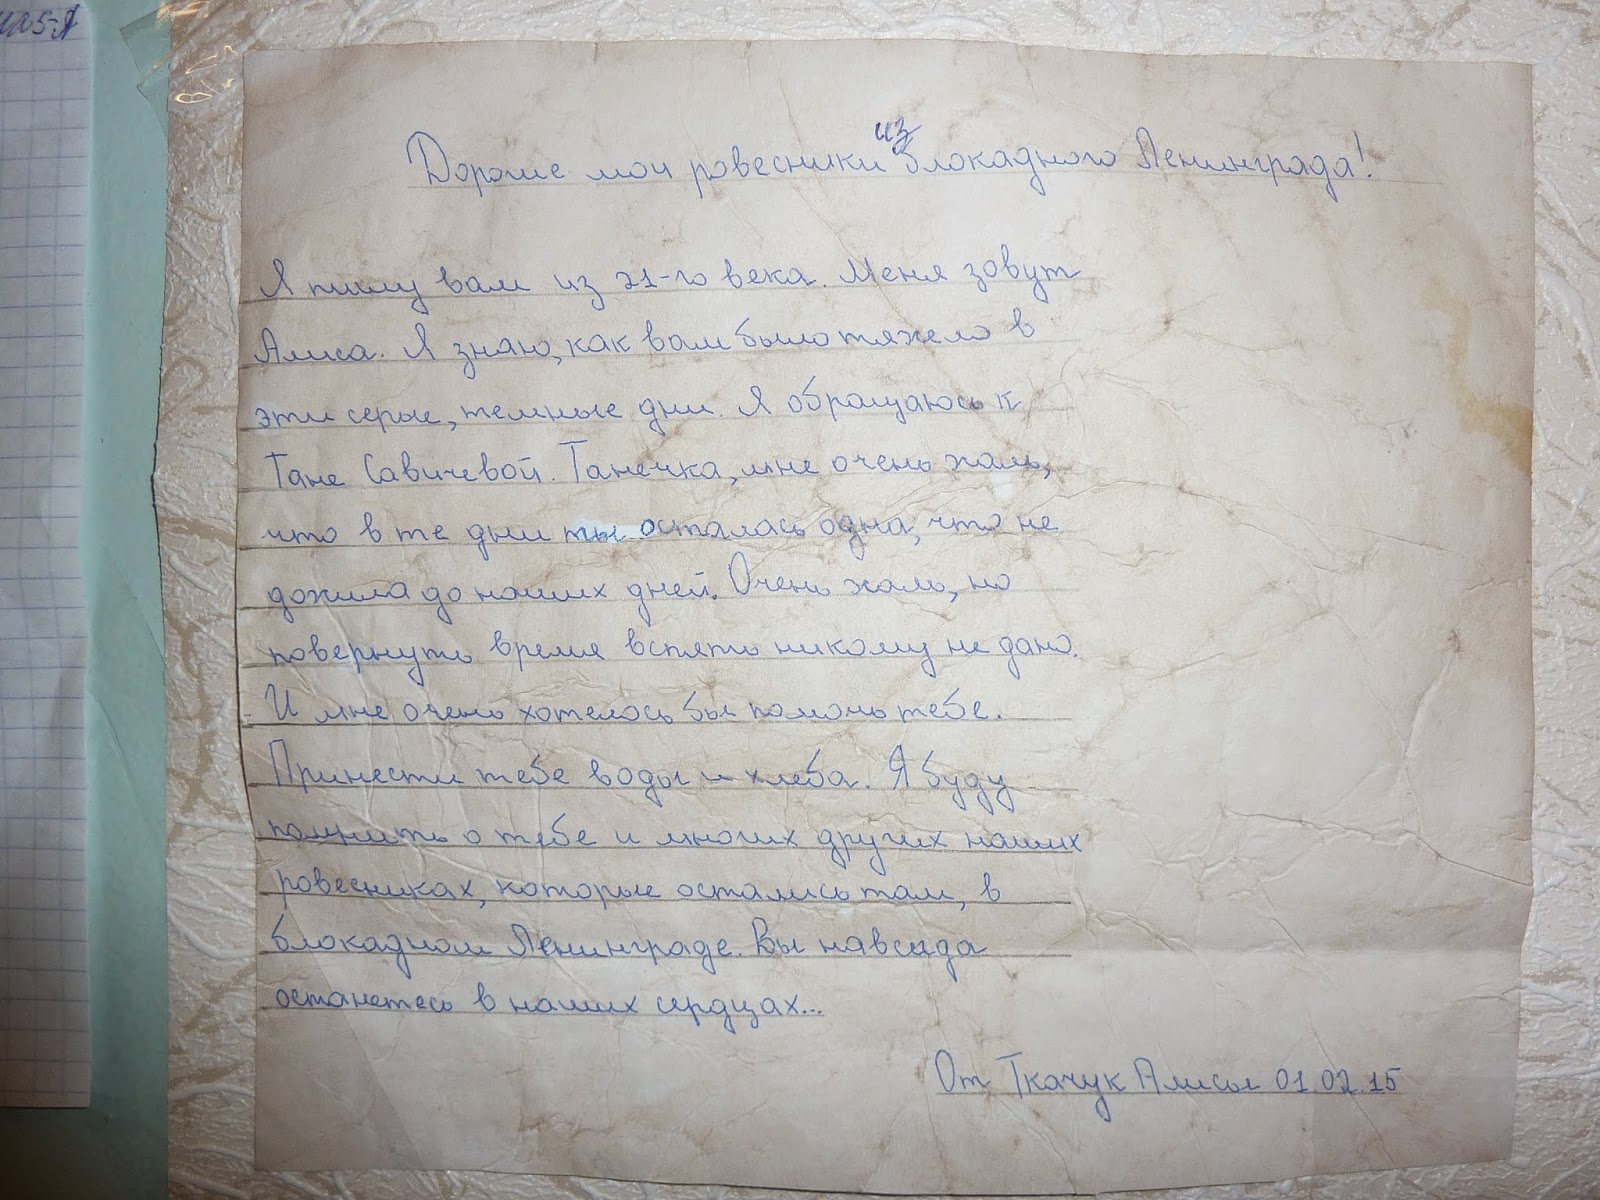 Дорогие мои ровесники из блокадного Ленинграда!
Я пишу вам из 21-го века. Меня зовут
Алиса. Я знаю, как вам было тяжело в
эти серые, темные дни. Я обращаюсь к
Тане Савичевой. Танечка, мне очень жаль,
что в те дни ты осталась одна, что не
дожила до наших дней. Очень жаль, но
повернуть время вспять никому не дано.
И мне очень хотелось бы помочь тебе.
Принести тебе воды и хлеба. Я буду
помнить о тебе и многих других наших
ровесниках, которые остались там, в
блокадном Ленинграде. Вы навсегда
останетесь в наших сердцах...
От Ткачук Алисы 01.02.15